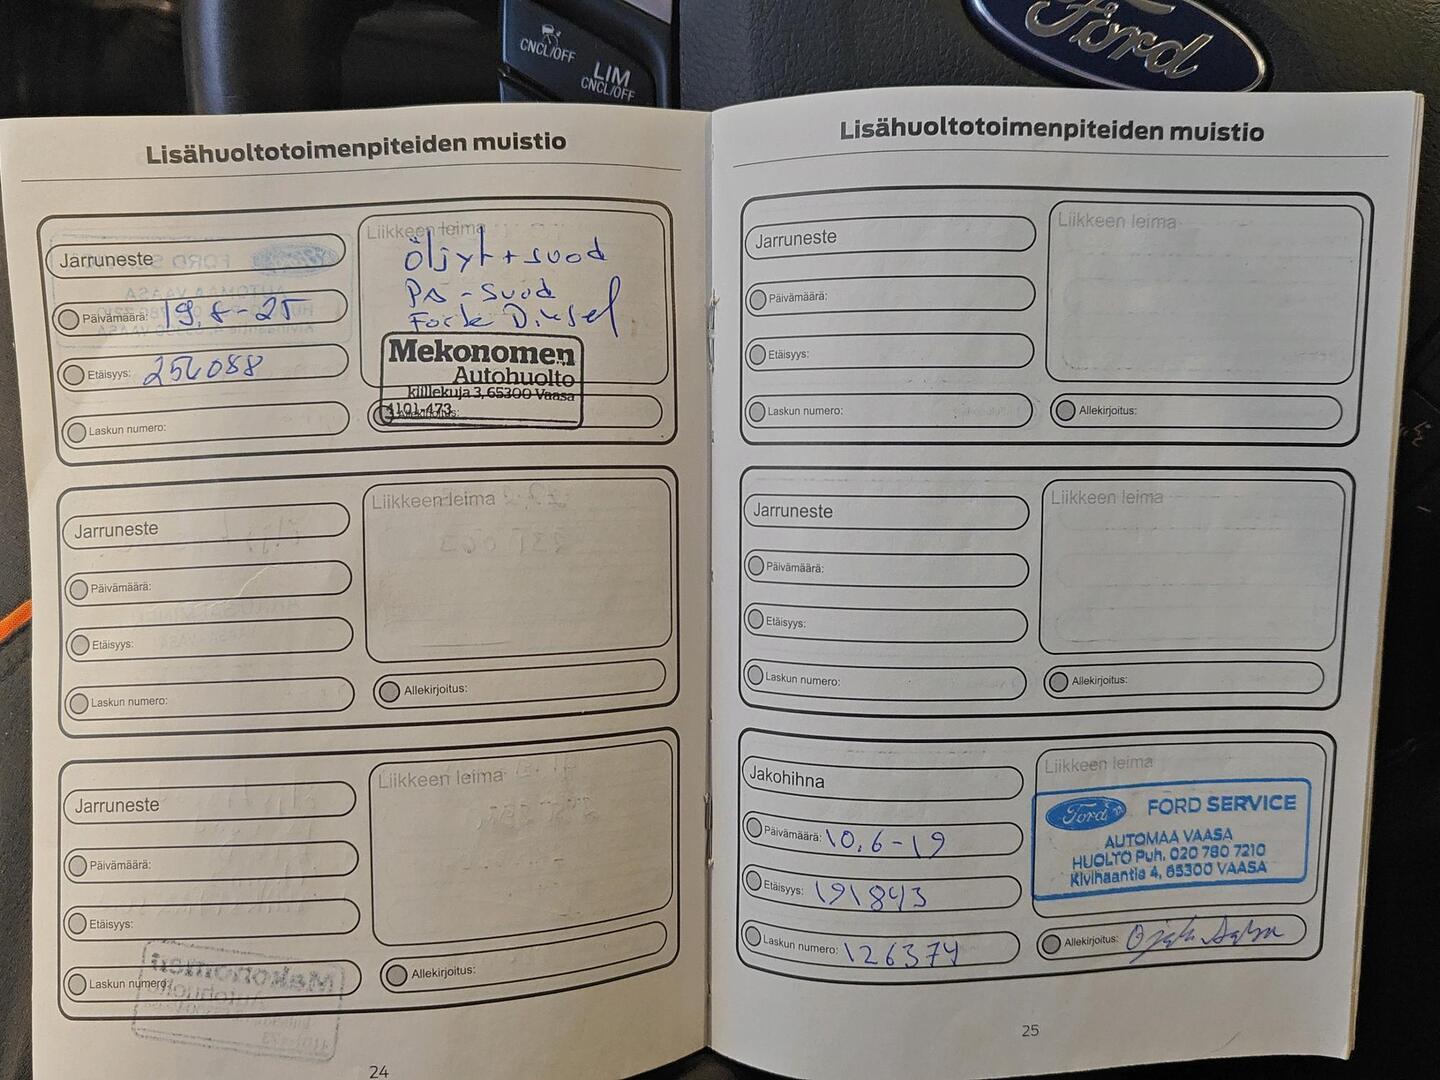 CNCL/OFF
LIM
CNCL/OFF
Ford
Lisähuoltotoimenpiteiden muistio
Jarruneste
Päivämäärä: 19.8-25
Etäisyys: 256088
Laskun numero:
Liikkeen leima
Öljyt + suod
PA-suod
Forte Diesel
Mekonomen
Autohuolto
kiillekuja 3, 65300 Vaasa
4101-473
Allekirjoitus:
Jarruneste
Päivämäärä:
Etäisyys:
Laskun numero:
Liikkeen leima
Allekirjoitus:
Jarruneste
Päivämäärä:
Etäisyys:
Laskun numero:
Liikkeen leima
Allekirjoitus:
24
Lisähuoltotoimenpiteiden muistio
Jarruneste
Päivämäärä:
Etäisyys:
Laskun numero:
Liikkeen leima
Allekirjoitus:
Jarruneste
Päivämäärä:
Etäisyys:
Laskun numero:
Liikkeen leima
Allekirjoitus:
Jakohihna
Päivämäärä: 10.6-19
Etäisyys: 191843
Laskun numero: 126374
Liikkeen leima
Ford FORD SERVICE
AUTOMAA VAASA
HUOLTO Puh. 020 780 7210
Kivihaantie 4, 65300 VAASA
Allekirjoitus:
25